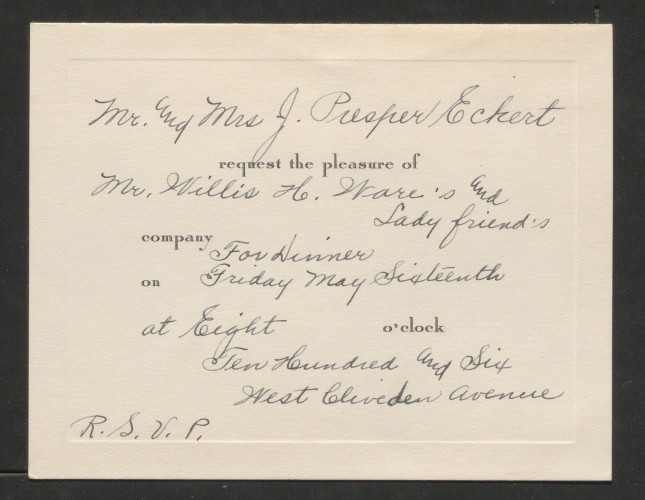 Mr. and Mrs J. Presper Eckert
request the pleasure of
Mr. Willis H. Ware's and
Lady friend's
company For Dinner
on Friday May Sixteenth
at Eight o'clock
Ten Hundred and Six
West Cliveden Avenue
R. S. V. P.